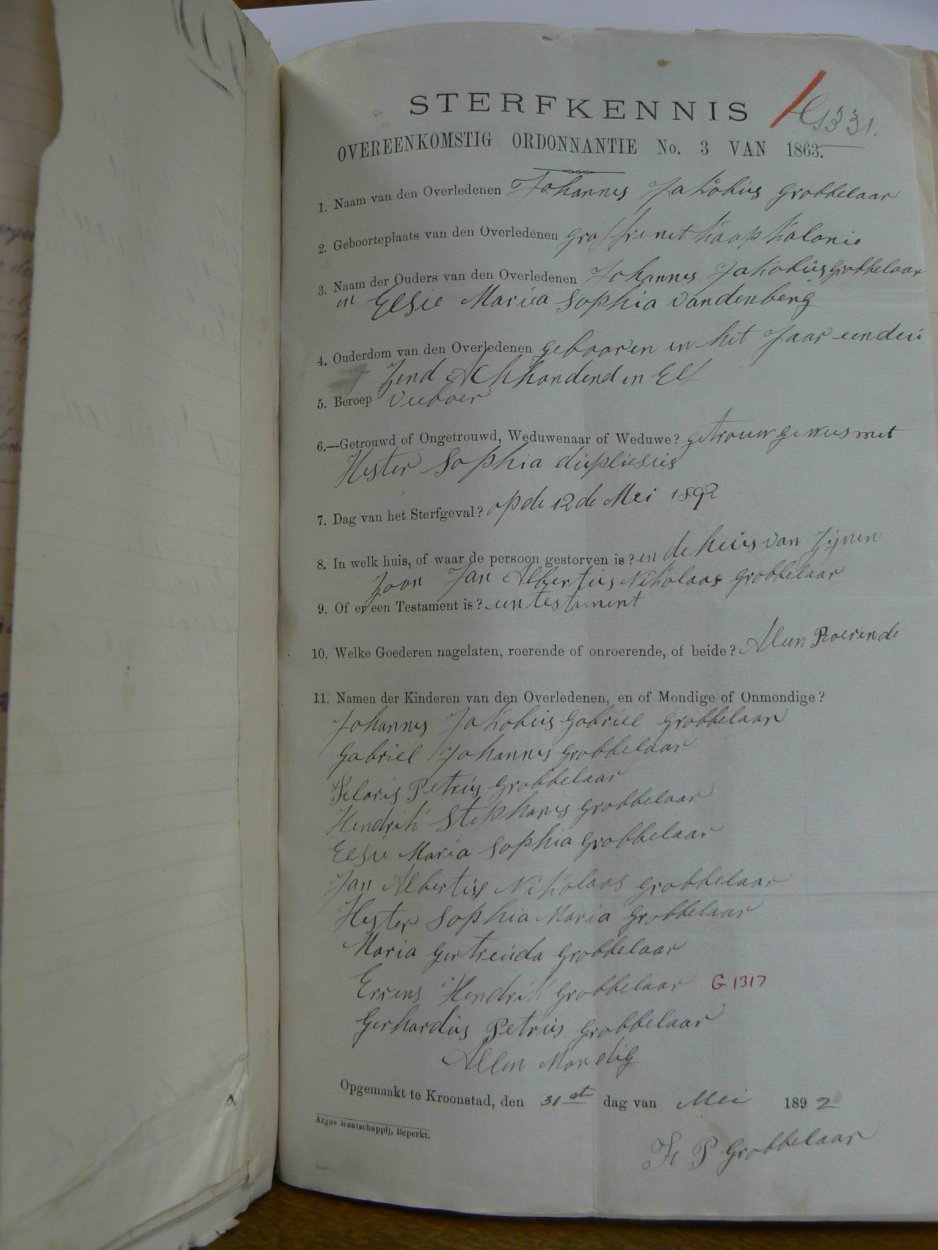 G1331.
STERFKENNIS
OVEREENKOMSTIG ORDONNANTIE No. 3 VAN 1863.
1. Naam van den Overledenen Johannes Jakobus Grobbelaar
2. Geboorteplaats van den Overledenen Graffrenet Kaap Kolonie
3. Naam der Ouders van den Overledenen Johannes Jakobus Grobbelaar
en Elsie Maria Sophia vandenberg
4. Ouderdom van den Overledenen gebooren in het Jaar een dui
zend Achhondend en Elf
5. Beroep veeboer
6.—Getrouwd of Ongetrouwd, Weduwenaar of Weduwe? getrouw gewees met
Hester Sophia duplessis
7. Dag van het Sterfgeval? op de 12 de Mei 1892
8. In welk huis, of waar de persoon gestorven is? en de huis van zynen
zoon Jan Albertus Nikolaas Grobbelaar
9. Of er een Testament is? een testament
10. Welke Goederen nagelaten, roerende of onroerende, of beide? Aleen Roerende
11. Namen der Kinderen van den Overledenen, en of Mondige of Onmondige?
Johannes Jakobus Gabriel Grobbelaar
Gabriel Johannes Grobbelaar
Petrus Grobbelaar
Hendrik Stephanes Grobbelaar
Elsie Maria Sophia Grobbelaar
Jan Albertus Nikolaas Grobbelaar
Hester Sophia Maria Grobbelaar
Maria Gertreuda Grobbelaar
Errens Hendrik Grobbelaar G 1317
Gerhardus Petrus Grobbelaar
Allen Mondig
Opgemaakt te Kroonstad, den 31st dag van Mei 1892
Argus Maatschappij, Beperkt.
P Grobbelaar